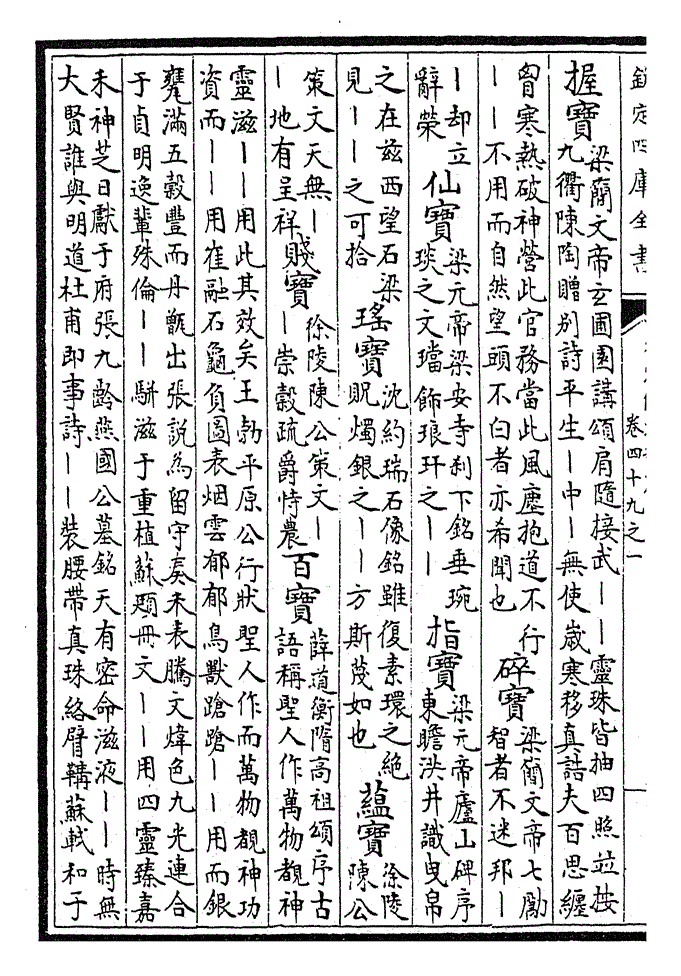 欽定四庫全書
卷四十九之一
握寶
梁簡文帝玄圃園講頌肩隨接武——靈珠皆抽四照並按
九衢陳陶贈別詩平生—中—無使歲寒移真誥夫百思纏
胷寒熱破神營此官務當此風塵抱道不行
——不用而自然望頭不白者亦希聞也
碎寶
梁簡文帝七勵
智者不迷邦—
—却立
辭榮
仙寶
梁元帝梁安寺刹下銘垂琬
琰之文璫飾琅玕之——
指寶
梁元帝廬山碑序
東瞻洪井識曳帛
之在兹西望石梁
見——之可拾
瑤寶
沈約瑞石像銘雖復素環之絕
貺燭銀之——方斯蔑如也
蘊寶
徐陵
陳公
策文天無—
—地有呈祥
賤寶
徐陵陳公策文—
—崇穀疏爵恃農
百寶
薛道衡隋高祖頌序古
語稱聖人作萬物覩神
靈滋——用此其效矣王勃平原公行狀聖人作而萬物覩神功
資而——用崔融石龜負圖表烟雲郁郁鳥獸蹌蹌——用而銀
甕滿五穀豐而丹甑出張說為留守奏禾表騰文煒色九光連合
于貞明逸輩殊倫——駢滋于重植蘇頲冊文——用四靈臻嘉
禾神芝日獻于府張九齡燕國公墓銘天有密命滋液——時無
大賢誰與明道杜甫即事詩——裝腰帶真珠絡臂鞲蘇軾和于